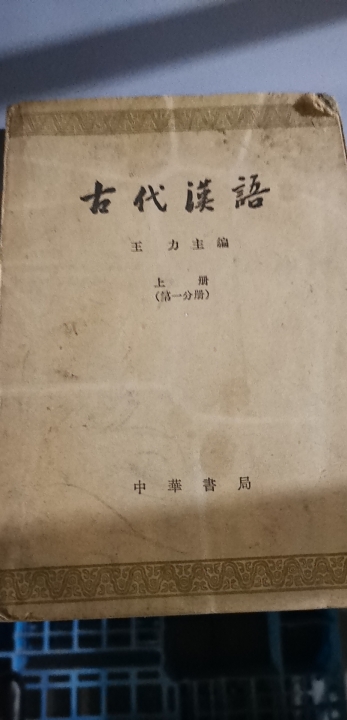 古代漢語
王力主編
上册
（第一分册）
中華書局